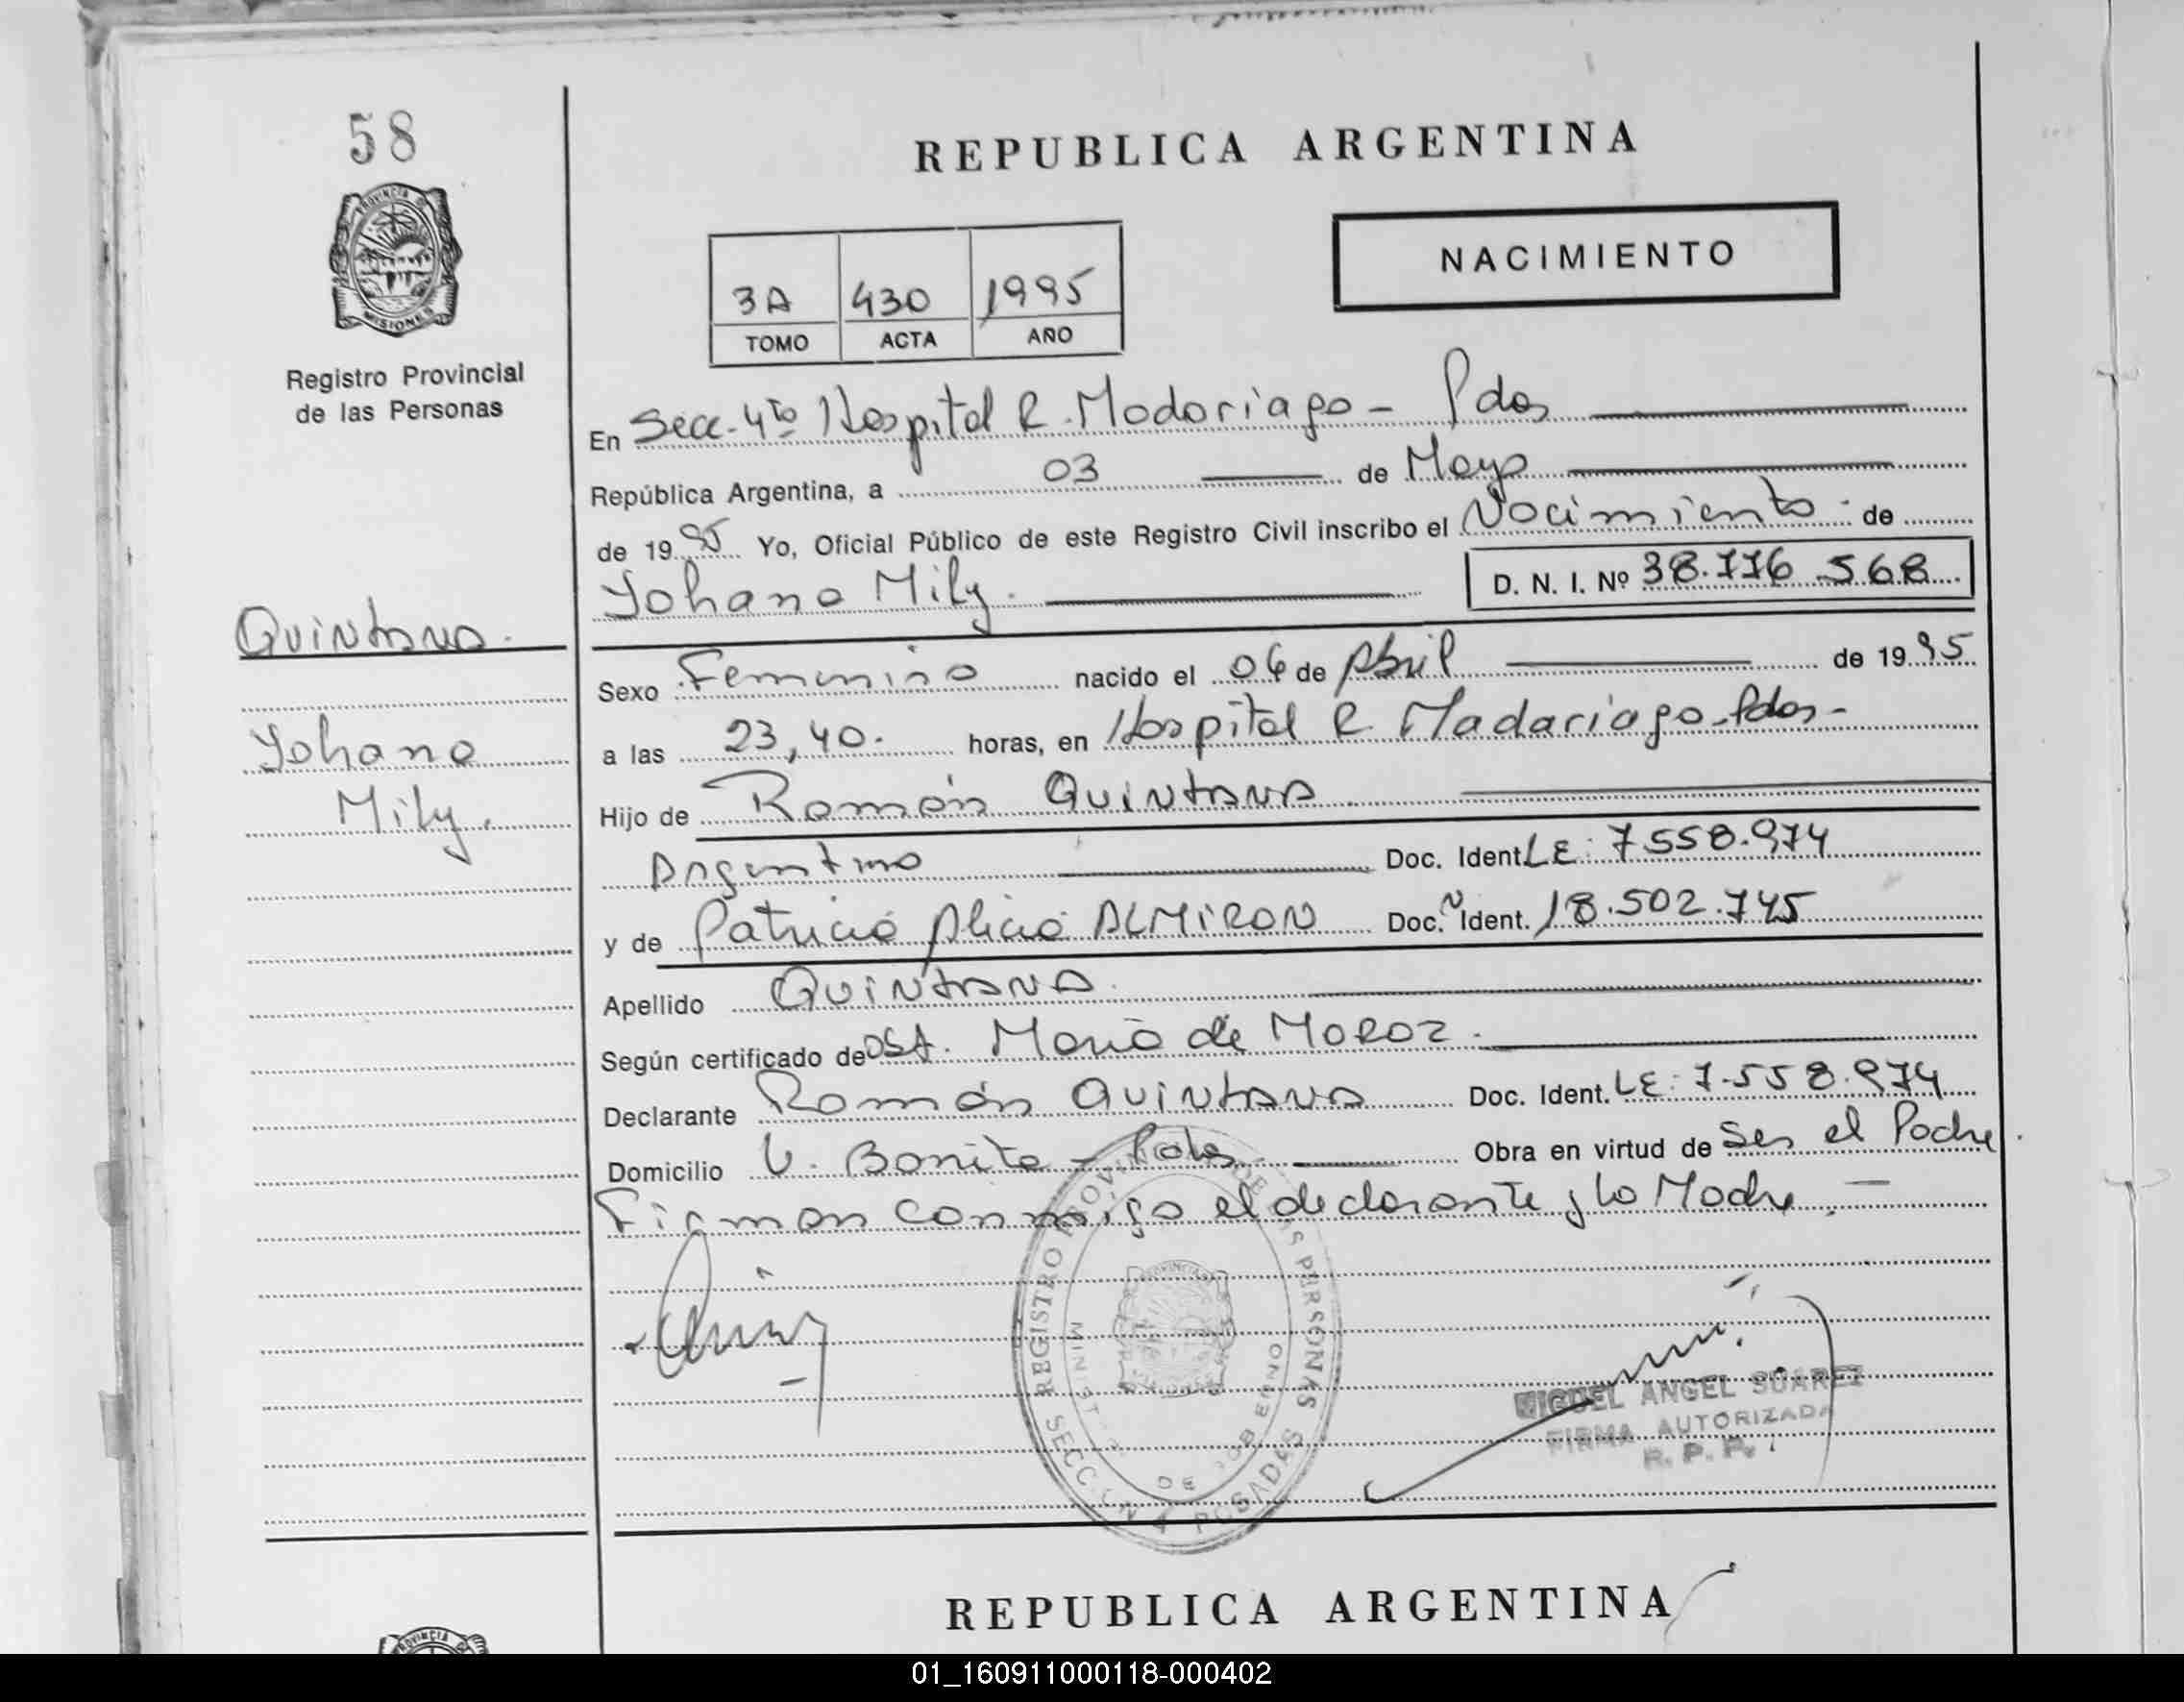 58
REPUBLICA ARGENTINA
NACIMIENTO
3A 430 1995
TOMO ACTA AÑO
PROVINCIA DE
MISIONES
Registro Provincial
de las Personas
En Secc. 4ta Hospital R. Madariaga - Pdas
República Argentina, a 03 de Mayo
de 1995 Yo, Oficial Público de este Registro Civil inscribo el Nacimiento de
Yohana Mily. D. N. I. Nº 38.776 568
Quintana.
Yohana
Mily.
Sexo Femenino nacido el 06 de Abril de 1995
a las 23,40. horas, en Hospital R. Madariaga - Pdas -
Hijo de Ramón Quintana
Argentino Doc. Ident. LE: 7558.974
y de Patricia Alicia ALMIRON Doc. Ident. 18.502.745
Apellido Quintana
Según certificado de Ost. María de MOROZ.
Declarante Ramón Quintana Doc. Ident. LE: 7.558.974
Domicilio V. Bonita - Pdas Obra en virtud de Ser el Padre.
Firman conmigo el declarante y la Madre. -
REGISTRO PROVINCIAL DE LAS PERSONAS
MINISTERIO DE GOBIERNO
SECCION 4 POSADAS
MIGUEL ANGEL SUAREZ
FIRMA AUTORIZADA
R. P. P.
REPUBLICA ARGENTINA
PROVINCIA
01_160911000118-000402